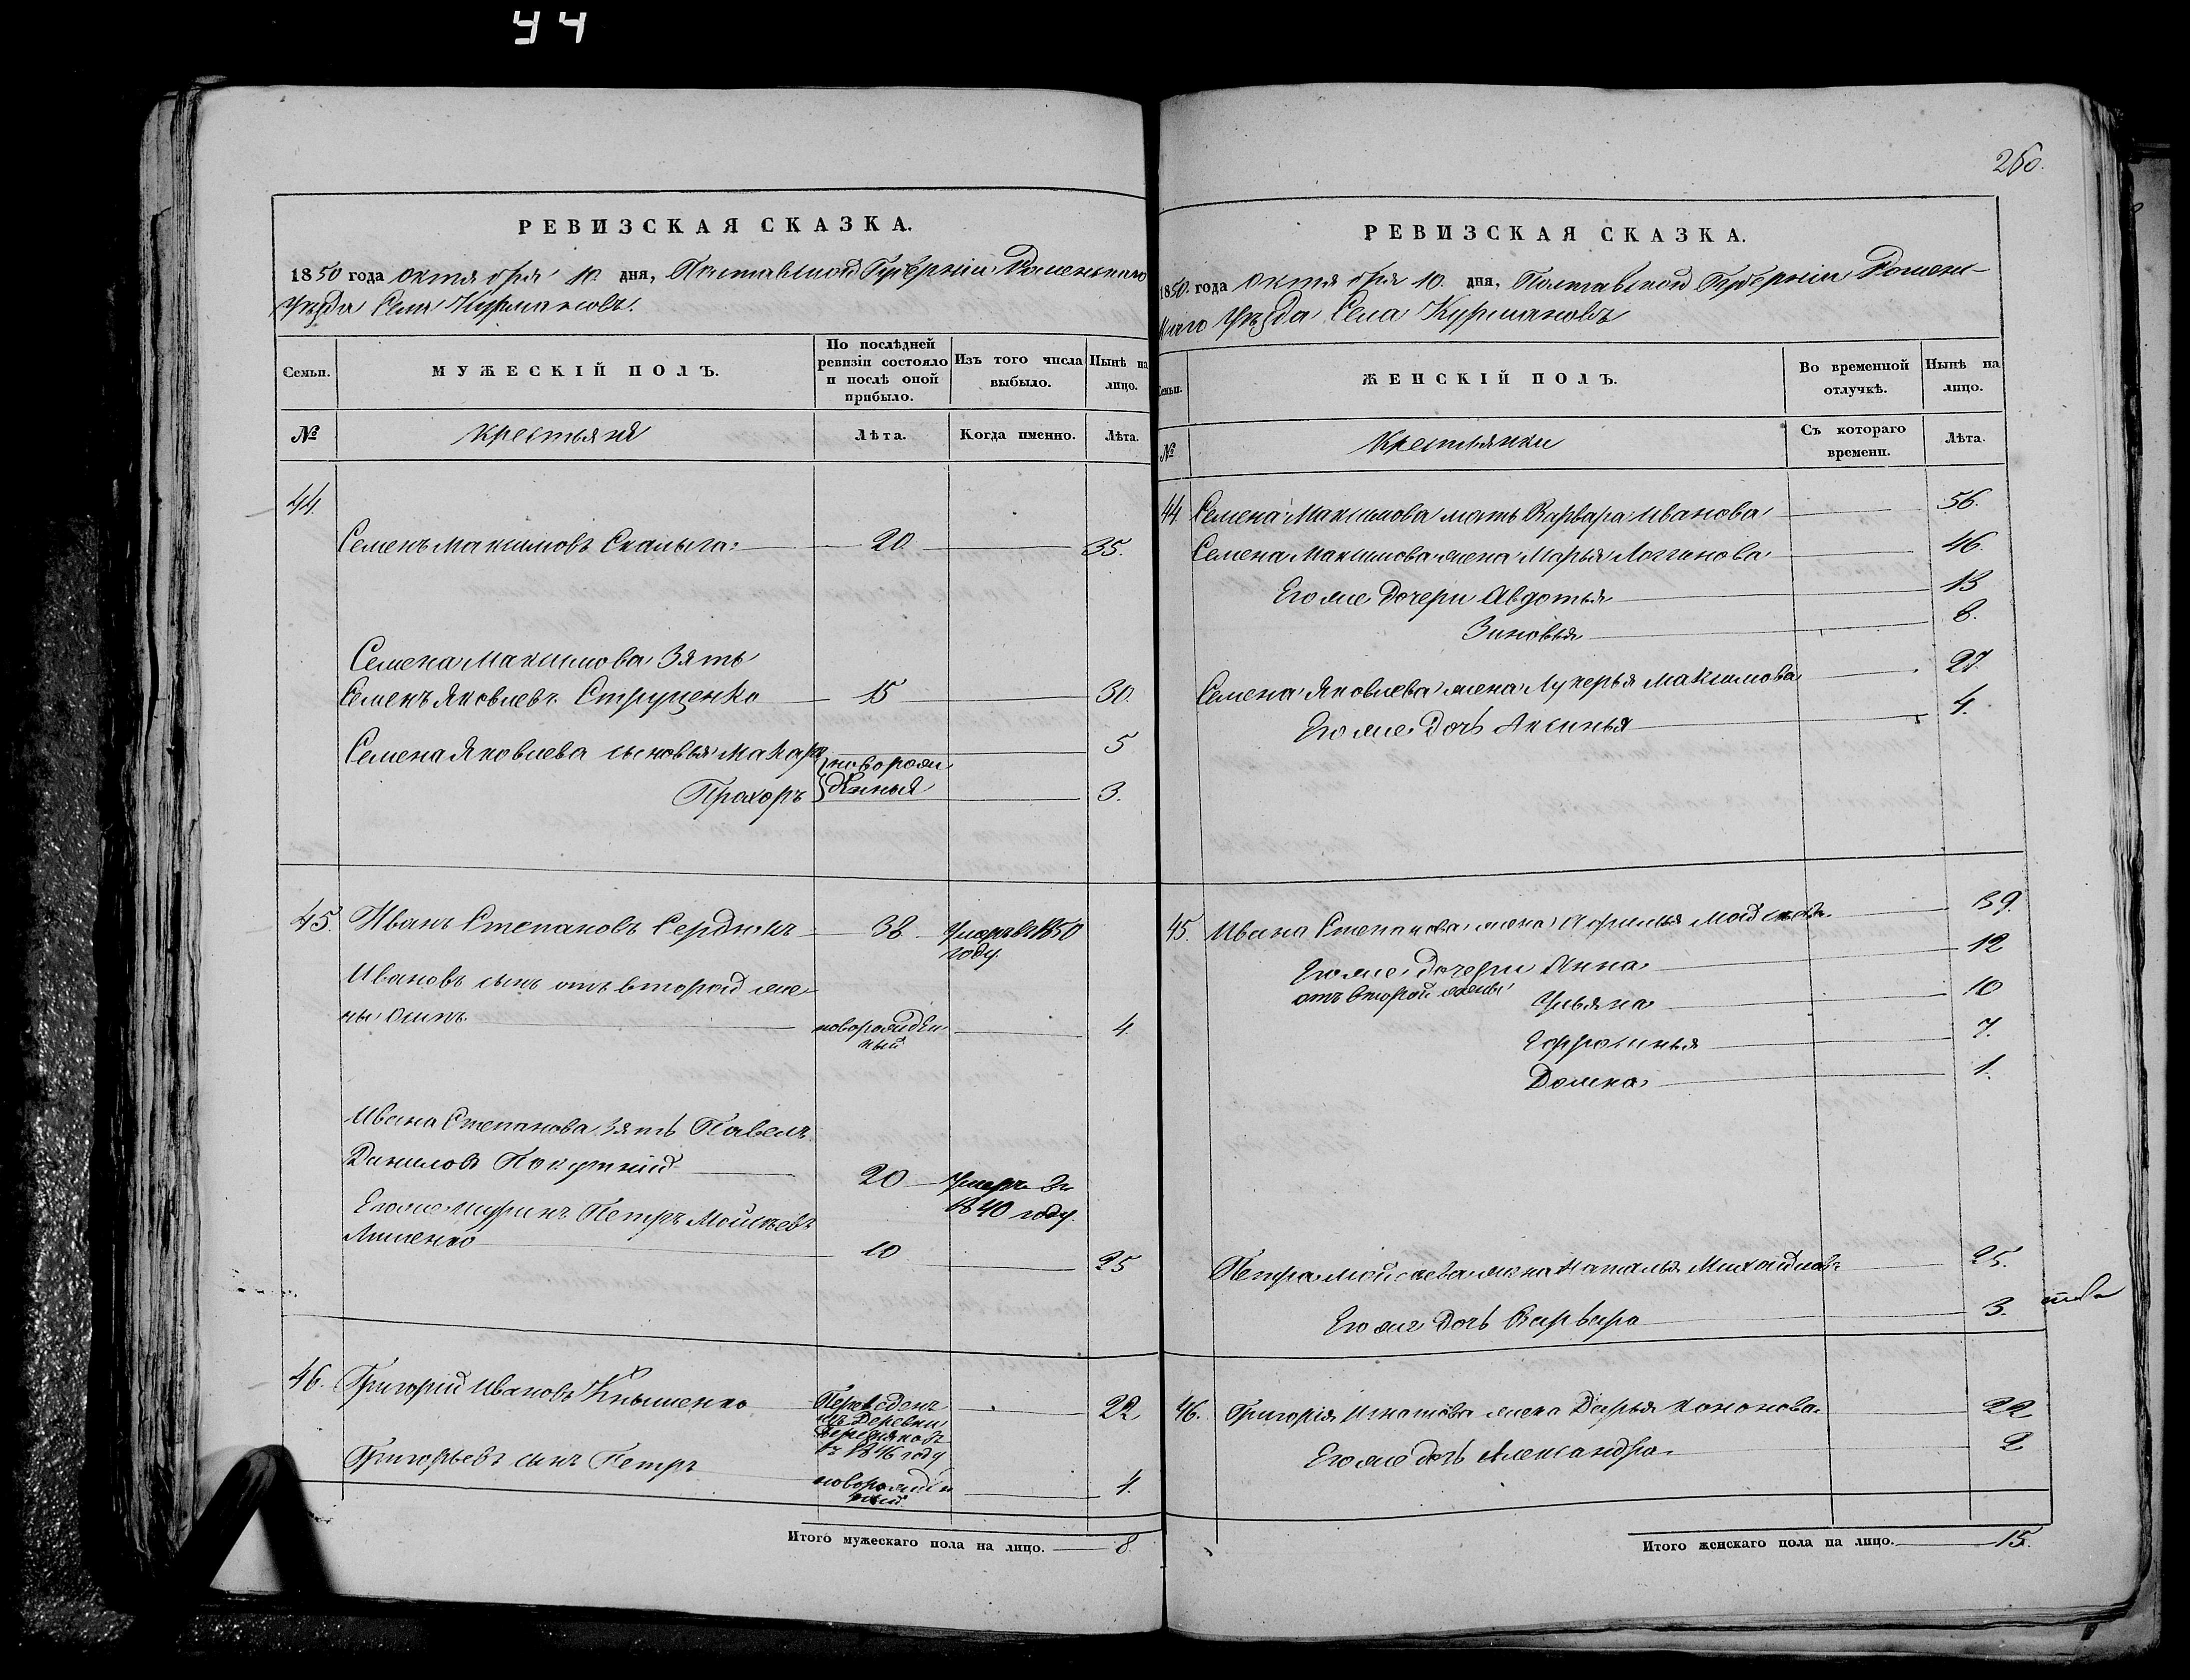 44
РЕВИЗСКАЯ СКАЗКА.
1850 года Октября 10 дня, Полтавской Губерніи Роменскаго
Уѣзда Села Курмановъ.
Семьи.
МУЖЕСКІЙ ПОЛЪ.
По послѣдней
ревизіи состояло
и послѣ оной
прибыло.
Изъ того числа
выбыло.
Нынѣ на
лицо.
№
Крестьяня
Лѣта.
Когда именно.
Лѣта.
44.
Семенъ Максимовъ Скалыга 20 35.
Семена Максимова зять
Семенъ Яковлевъ Струценко 15 30.
Семена Яковлева сыновья Макаръ 5
новорож
Прохоръ денныя 3.
45. Иванъ Степановъ Сердюкъ 38 Умеръ въ 1850
году.
Ивановъ сынъ отъ второй же
ны Осипъ новорожден 4.
ный
Ивана Степанова зять Павелъ
Даниловъ 20 Умеръ въ
1840 году.
Его же шуринъ Петръ Мойсѣевъ
10 25
46. Григорій Ивановъ Кнышенко Переведенъ 22
изъ деревни
въ 1846 году
Григорьевъ сынъ Петръ новорожден 4.
ный
Итого мужескаго пола на лицо. 8.
260.
РЕВИЗСКАЯ СКАЗКА.
1850. года Октября 10. дня, Полтавской Губерніи Ромен-
скаго Уѣзда Села Курмановъ
Семьи.
ЖЕНСКІЙ ПОЛЪ.
Во временной
отлучкѣ.
Нынѣ на
лицо.
№
Крестьянки
Съ котораго
времени.
Лѣта.
44. Семена Максимова мать Варвара Иванова 56.
Семена Максимова жена Марья Логинова 46.
Его же дочери Авдотья 13
Зиновья 8.
Семена Яковлева жена Лукерья Максимова 27.
Его же дочь Аксинья 4.
45. Ивана Степанова жена 39.
Его же дочери Анна 12
отъ второй жены Ульяна 10
Ефросинья 7.
Домна 1.
Петра Мойсеева жена Наталья Михайлова 25.
Его же дочь Варвара 3.
46. Григорія Игнатова жена Дарья Кононова 22
Его же дочь Александра 2
Итого женскаго пола на лицо. 15.